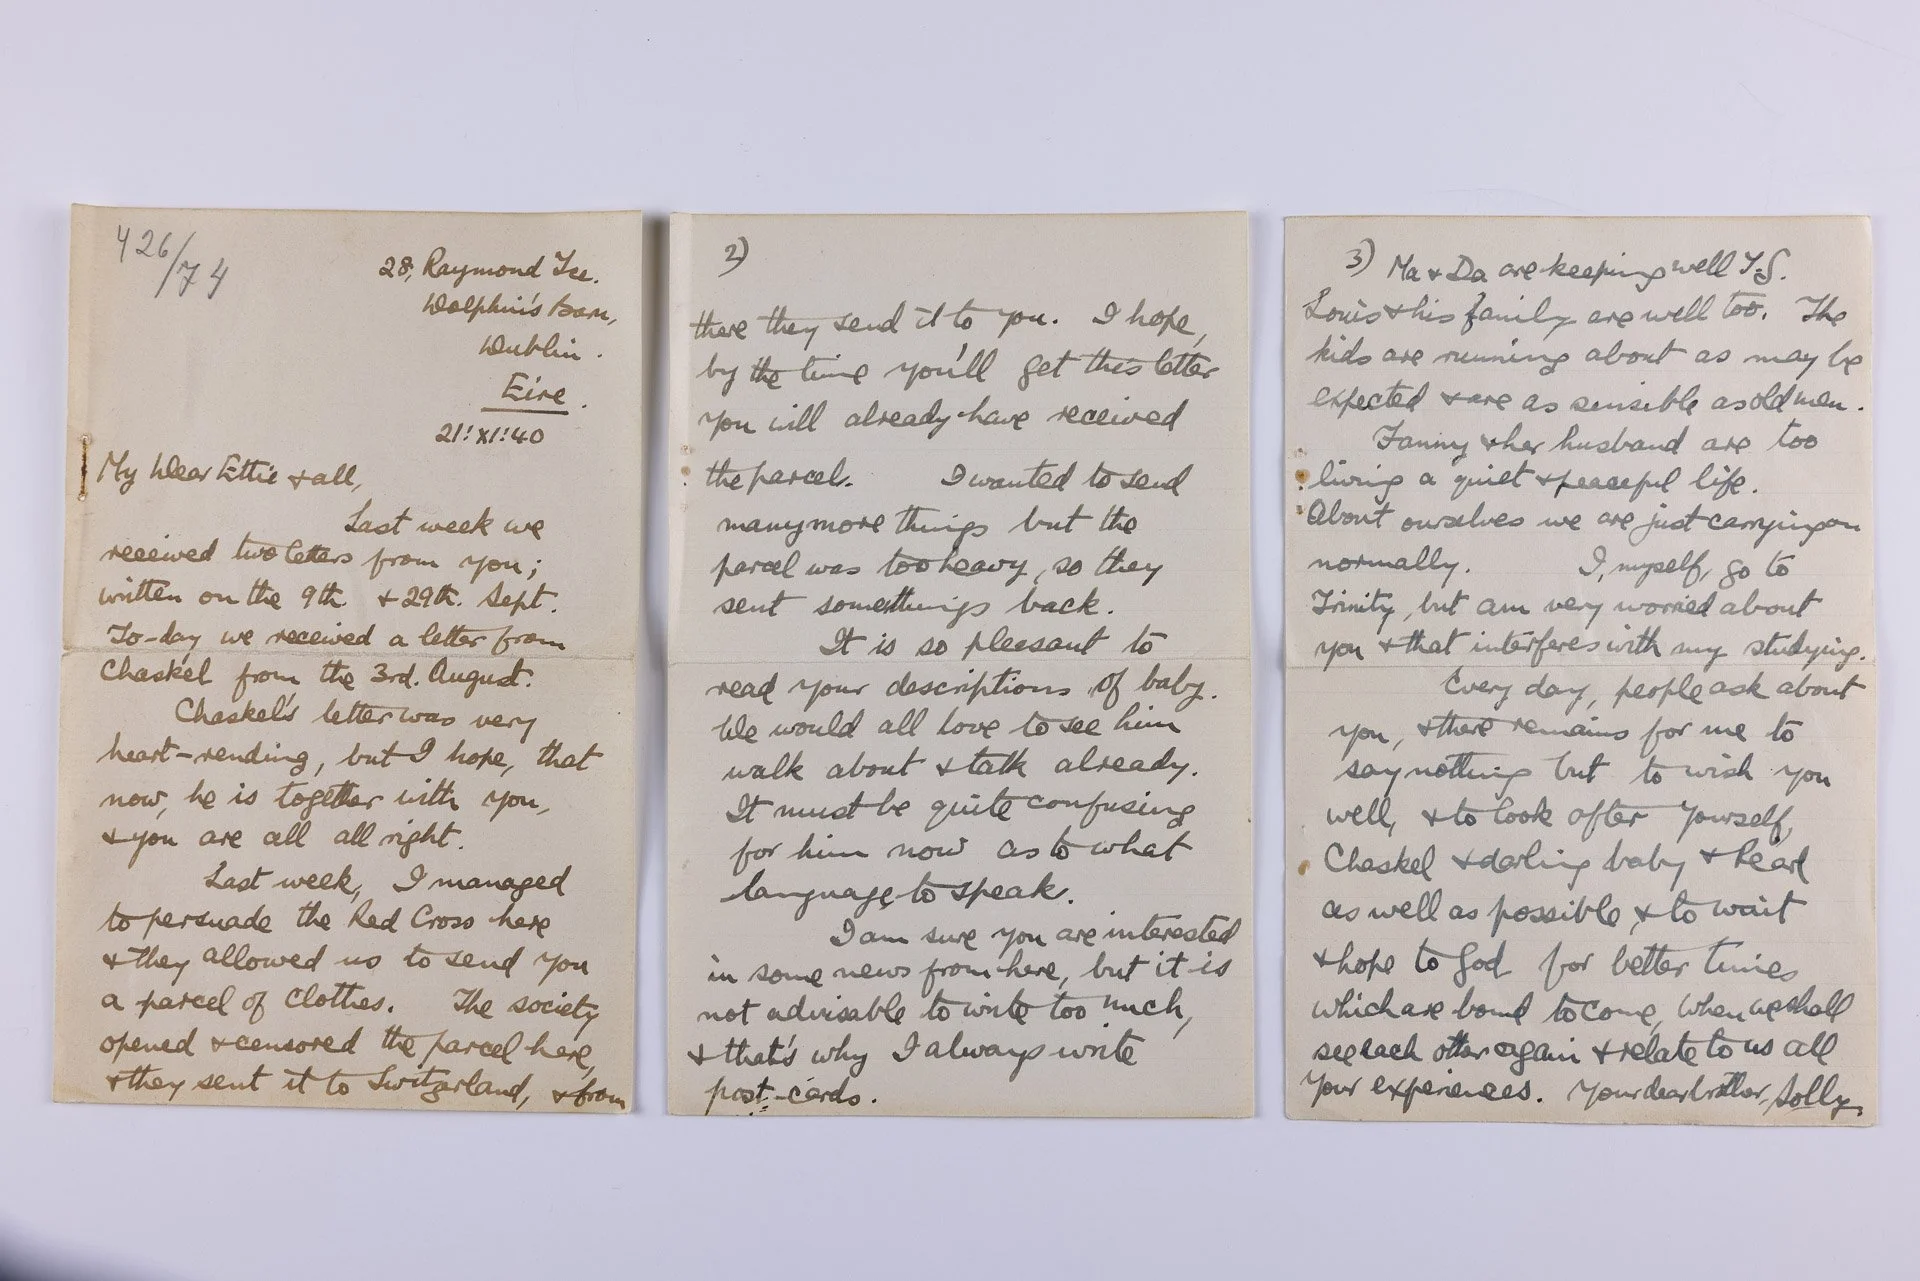 426/74
28, Raymond Tce.
Dolphin's Barn,
Dublin.
Eire.
21:XI:40
My Dear Ettie & all,
Last week we
received two letters from you;
written on the 9th. & 29th. Sept.
To-day we received a letter from
Chaskel from the 3rd. August.
Chaskel's letter was very
heart-rending, but I hope, that
now, he is together with you,
& you are all all right.
Last week, I managed
to persuade the Red Cross here
& they allowed us to send you
a parcel of clothes. The society
opened & censored the parcel here,
& they sent it to Switzerland, & from
2)
there they send it to you. I hope,
by the time you'll get this letter
you will already have received
the parcel. I wanted to send
many more things but the
parcel was too heavy, so they
sent some things back.
It is so pleasant to
read your descriptions of baby.
We would all love to see him
walk about & talk already.
It must be quite confusing
for him now as to what
language to speak.
I am sure you are interested
in some news from here, but it is
not advisable to write too much,
& that's why I always write
post-cards.
3) Ma & Da are keeping well T.G.
Louis & his family are well too. The
kids are running about as may be
expected & are as sensible as old men.
Fanny & her husband are too
living a quiet & peaceful life.
About ourselves we are just carrying on
normally. I, myself, go to
Trinity, but am very worried about
you & that interferes with my studying.
Every day, people ask about
you, & there remains for me to
say nothing but to wish you
well, & to look after yourself,
Chaskel & darling baby & Pearl
as well as possible & to wait
& hope to God for better times
which are bound to come, when we shall
see each other again & relate to us all
your experiences. Your dear brother, Solly